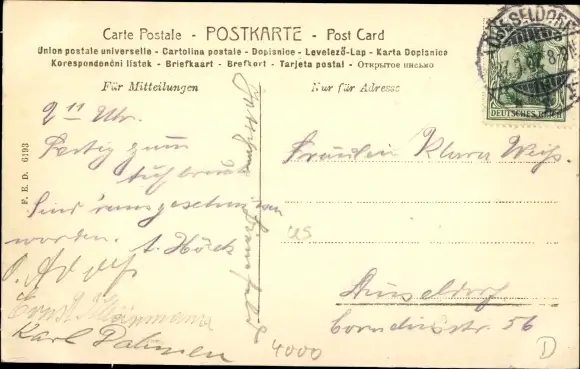 Carte Postale - POSTKARTE - Post Card
Union postale universelle - Cartolina postale - Dopisnice - Levelező-Lap - Karta Dopisnice
Korespondenční listek - Briefkaart - Brefkort - Tarjeta postal - Открытое письмо
Für Mitteilungen
Nur für Adresse
DÜSSELDORF
DEUTSCHES REICH
F. E. D. 6193
9 11 Uhr.
Fertig zum
Aufbruch
Sind rausgeschmissen
worden.
Karl Dahmen
Fräulein Klara Weiß.
US
Düsseldorf
Corneliusstr. 56
4000
D